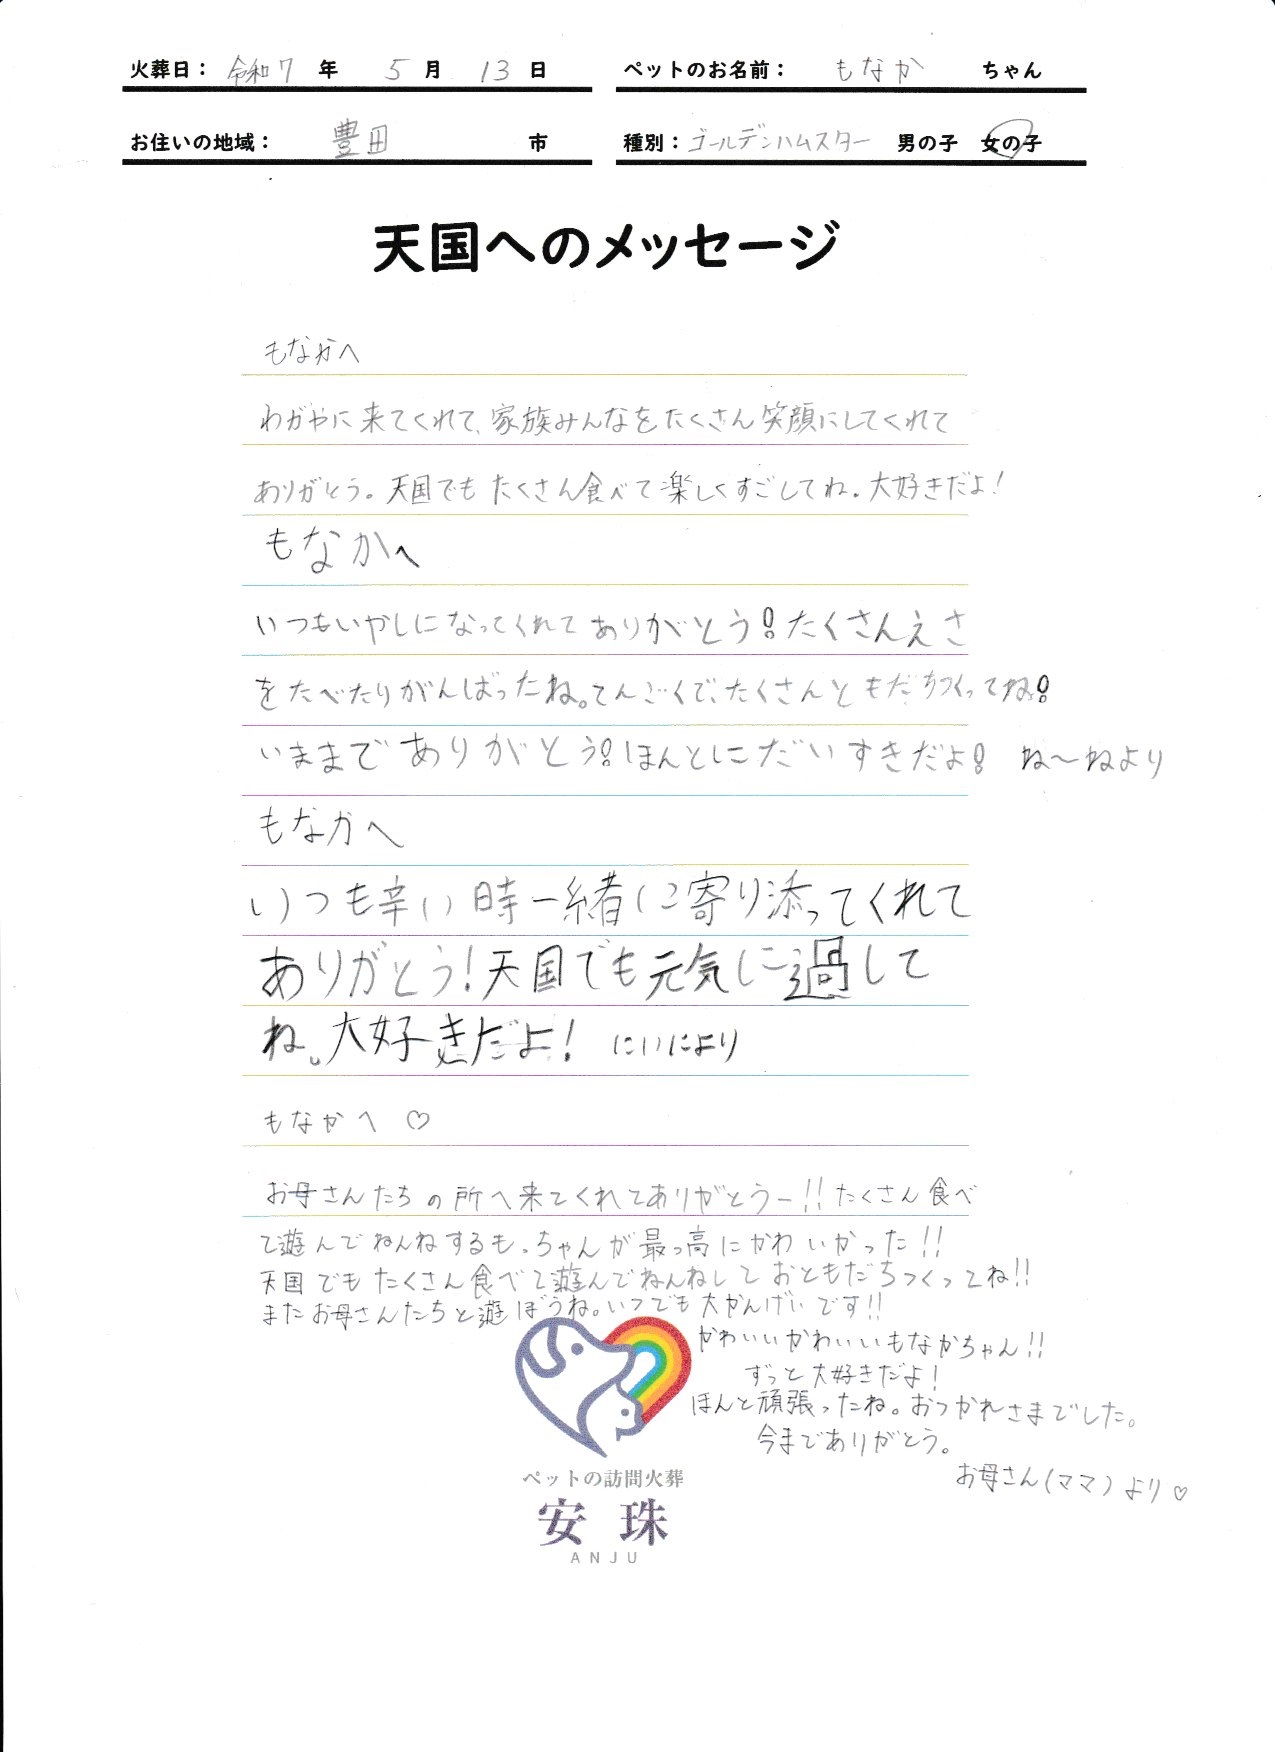 火葬日： 令和7 年 5 月 13 日 ペットのお名前： もなか ちゃん
お住いの地域： 豊田 市 種別：ゴールデンハムスター 男の子 女の子
天国へのメッセージ
もなかへ
わがやに来てくれて、家族みんなをたくさん笑顔にしてくれて
ありがとう。天国でもたくさん食べて楽しくすごしてね。大好きだよ！
もなかへ
いつもいやしになってくれてありがとう！たくさんえさ
をたべたりがんばったね。てんごくで、たくさんともだちつくってね！
いままでありがとう！ほんとにだいすきだよ！ ね〜ねより
もなかへ
いつも辛い時一緒に寄り添ってくれて
ありがとう！天国でも元気に過して
ね。大好きだよ！ にいにより
もなかへ ♡
お母さんたちの所へ来てくれてありがとうー!!たくさん食べ
て遊んでねんねするも、ちゃんが最っ高にかわいかった!!
天国でもたくさん食べて遊んでねんねしておともだちつくってね!!
またお母さんたちと遊ぼうね。いつでも大かんげいです!!
かわいいかわいいもなかちゃん!!
ずっと大好きだよ！
ほんと頑張ったね。おつかれさまでした。
今までありがとう。
お母さん(ママ)より♡
ペットの訪問火葬
安珠
ANJU